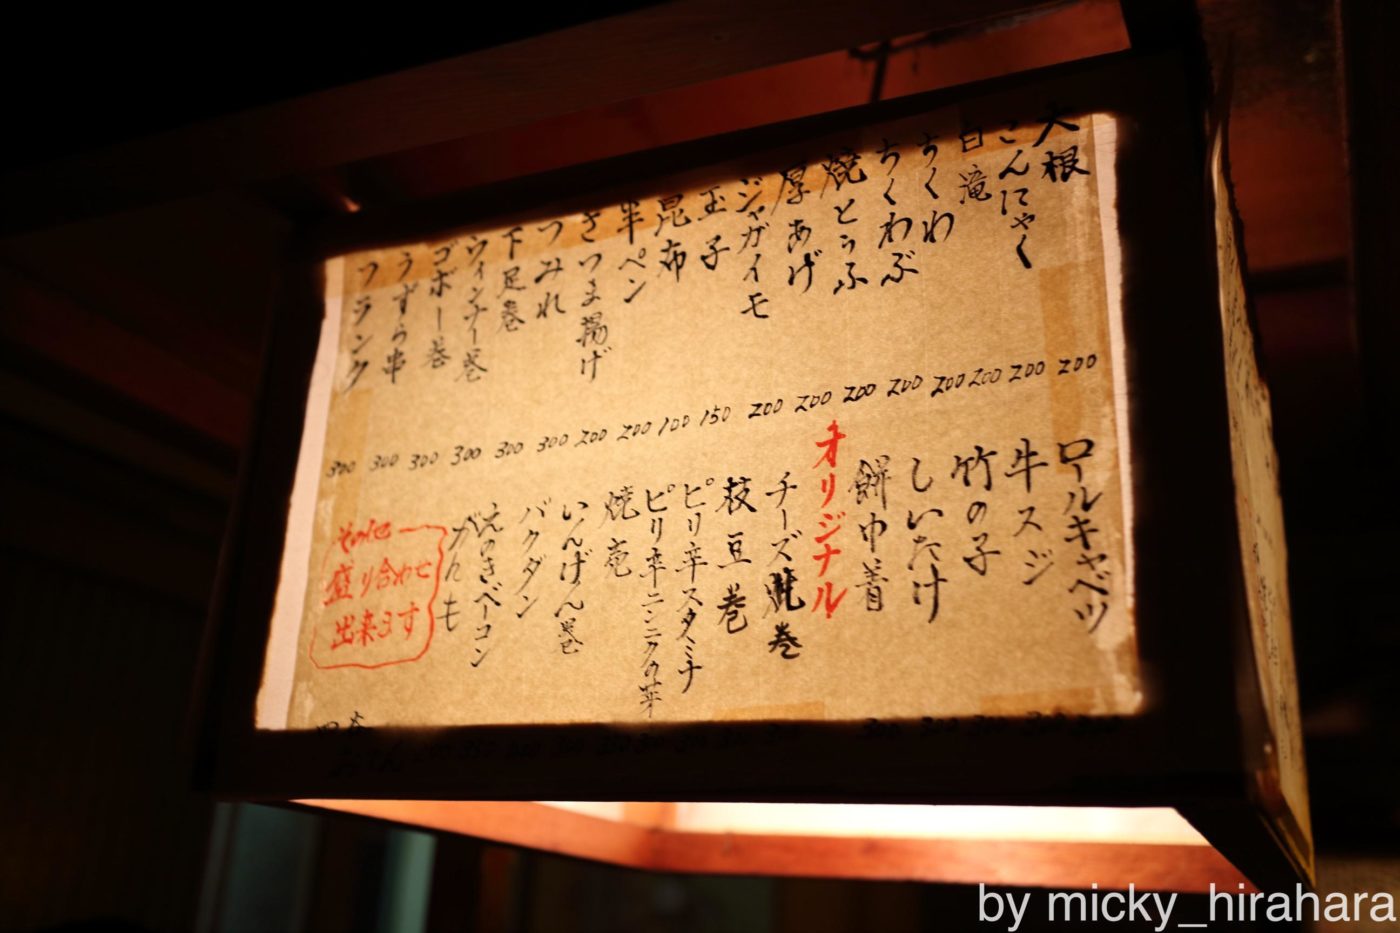 大根 200
こんにゃく 200
白滝 200
ちくわ 200
ちくわぶ 200
焼とうふ 200
厚あげ 200
ジャガイモ 200
玉子 150
昆布 100
半ペン 200
さつま揚げ 200
つみれ 300
下足巻 300
ウィンナー巻 300
ゴボー巻 300
うずら串 300
フランク 300
ロールキャベツ
牛スジ
竹の子
しいたけ
餅巾着
オリジナル
チーズ 巻
枝豆巻
ピリ辛スタミナ
ピリ辛ニンニクの芽
焼売
いんげん巻
バクダン
えのきベーコン
がんも
その他
盛り合わせ
出来ます
by micky_hirahara